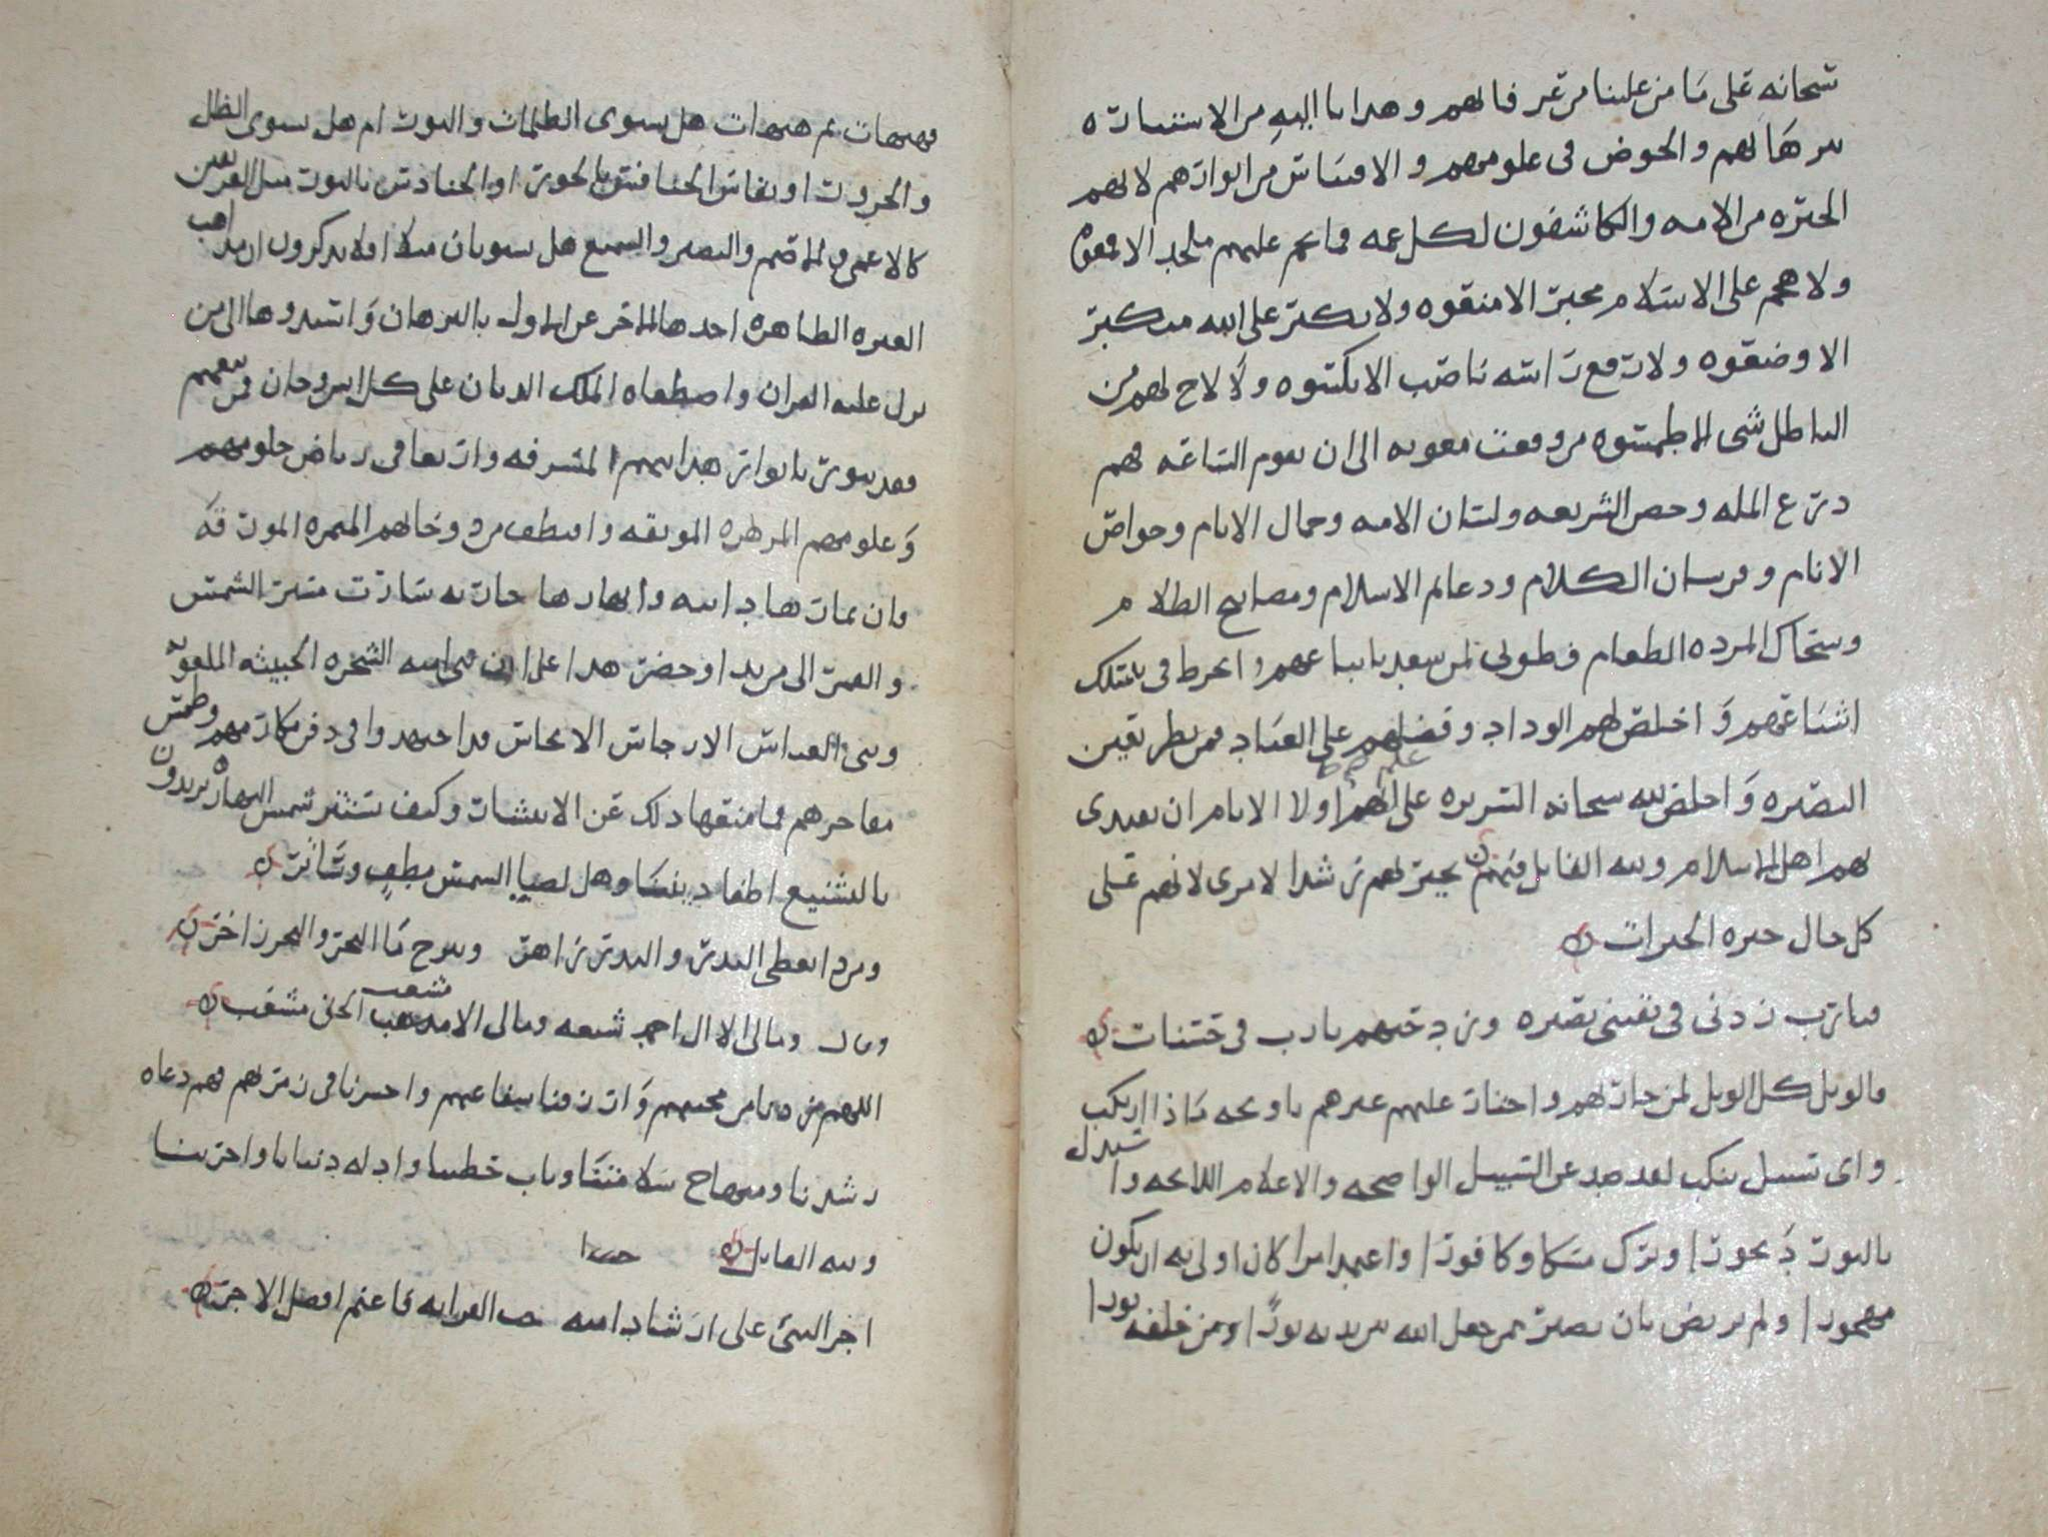 سحانه على ما من علينا من عرفانهم وهدانا اليه من الاستنارة
ببرهانهم والخوض في علومهم والاقتباس من انوارهم لانهم
الخيره من الامه والكاشفون لكل غمه فما نجم عليهم ملحد الا قمعوه
ولا هجم على الاسلام مخبر الا منقوه ولا تكبر على الله متكبر
الا وضعوه ولا رفع راسه ناصب الا نكسوه ولا لاح لهم من
الباطل شي الا طمسوه من وقت معويه الى ان تقوم الساعه فهم
درع المله وحصن الشريعه ولسان الامه وجمال الايام وخواص
الانام وفرسان الكلام ودعائم الاسلام ومصابيح الظلام
وسحاك المرده الطغام فطوبى لمن سعد باتباعهم وانخرط في سلك
اشياعهم واخلص لهم الوداد وفضلهم على العباد فمن نظر بعين
البصيره واخلص لله سبحانه السريره علم انهم اولا الانام ان يقتدى
بهم اهل الاسلام ولله القايل فيهم تخيرتهم رشدا لامري لانهم على
كل حال خيره الخيرات
فيا رب زدني في يقيني بصيره وزد حبهم يا رب في حسنات
فالويل كل الويل لمن حاد لهم واختار عليهم غيرهم يا ويحه ماذا ارتكب
واي سبيل نكب لقد صد عن السبيل الواضحه والاعلام اللائحه واستبدل
بالنور ديجورا وترك مسكا وكافورا واعتمد امرا كان اولى به ان يكون
مهجورا ولم يرتض بان يصير ممن جعل الله بين يديه نورا ومن خلفه نورا
فهيهات ثم هيهات هل يستوى الظلمات والنور ام هل يستوى الظل
والحرور او يقاس الخنافس بالحور او الحنادس بالنور مثل الفريقين
كالاعمى والاصم والبصير والسميع هل يستويان مثلا افلا تذكرون ان مذاهب
العتره الطاهره اخذها الاخر عن الاول بالبرهان واسندوها الى من
نزل عليه القران واصطفاه الملك الديان على كل انس وجان فمن تبعهم
فقد تنور بانوار هدايتهم المشرفه وارتعا في رياض حلومهم
وعلومهم المزهره المونقه واقتطف من دوحاتهم المثمره المورقه
فان ثمارها دانيه وانهارها جاريه سارت مسير الشمس
والقمر الى من بدا وحضر هذا على ان بني اميه الشجره الخبيثه الملعونه
وبني العباس الارجاس الانجاس قد اجتهدوا في دفن مكارمهم وطمس
مفاخرهم فما منعها ذلك عن الانتشار وكيف تستتر شمس النهار يريدون
بالتشنيع اطفا ديننا وهل لضيا الشمس مطف وساتر
ومن ذا يغطي البدر والبدر زاهر وينزح ما البحر والبحر زاخر
وقال وما لي الا ال احمد شيعه وما لي الا مذهب الحق مشعب
مشعب
اللهم من علينا من محبتهم وارزقنا شفاعتهم واحشرنا في زمرتهم فهم دعاه
رشدنا ومنهاج سلامتنا وباب حطتنا وادله دنيانا واخرتنا
ولله القايل
اجر النبي على ارشاد امته حب القرابه فاغنم افضل الاجر